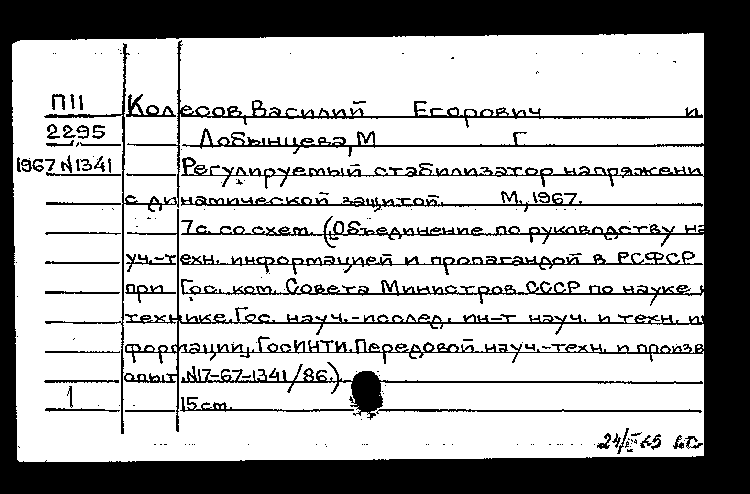 П11 Колесов, Василий Егорович и
2295 Лобынцева, М Г
1967 №1341 Регулируемый стабилизатор напряжени
с динамической защитой. М., 1967.
7с. со схем. (Объединение по руководству на
уч.-техн. информацией и пропагандой в РСФСР
при Гос. ком. Совета Министров СССР по науке
технике. Гос. науч.-исслед. ин-т науч. и техн. ин
формации, ГосИНТИ. Передовой науч.-техн. и произв
опыт. №17-67-1341/86.)
1 15 cm.